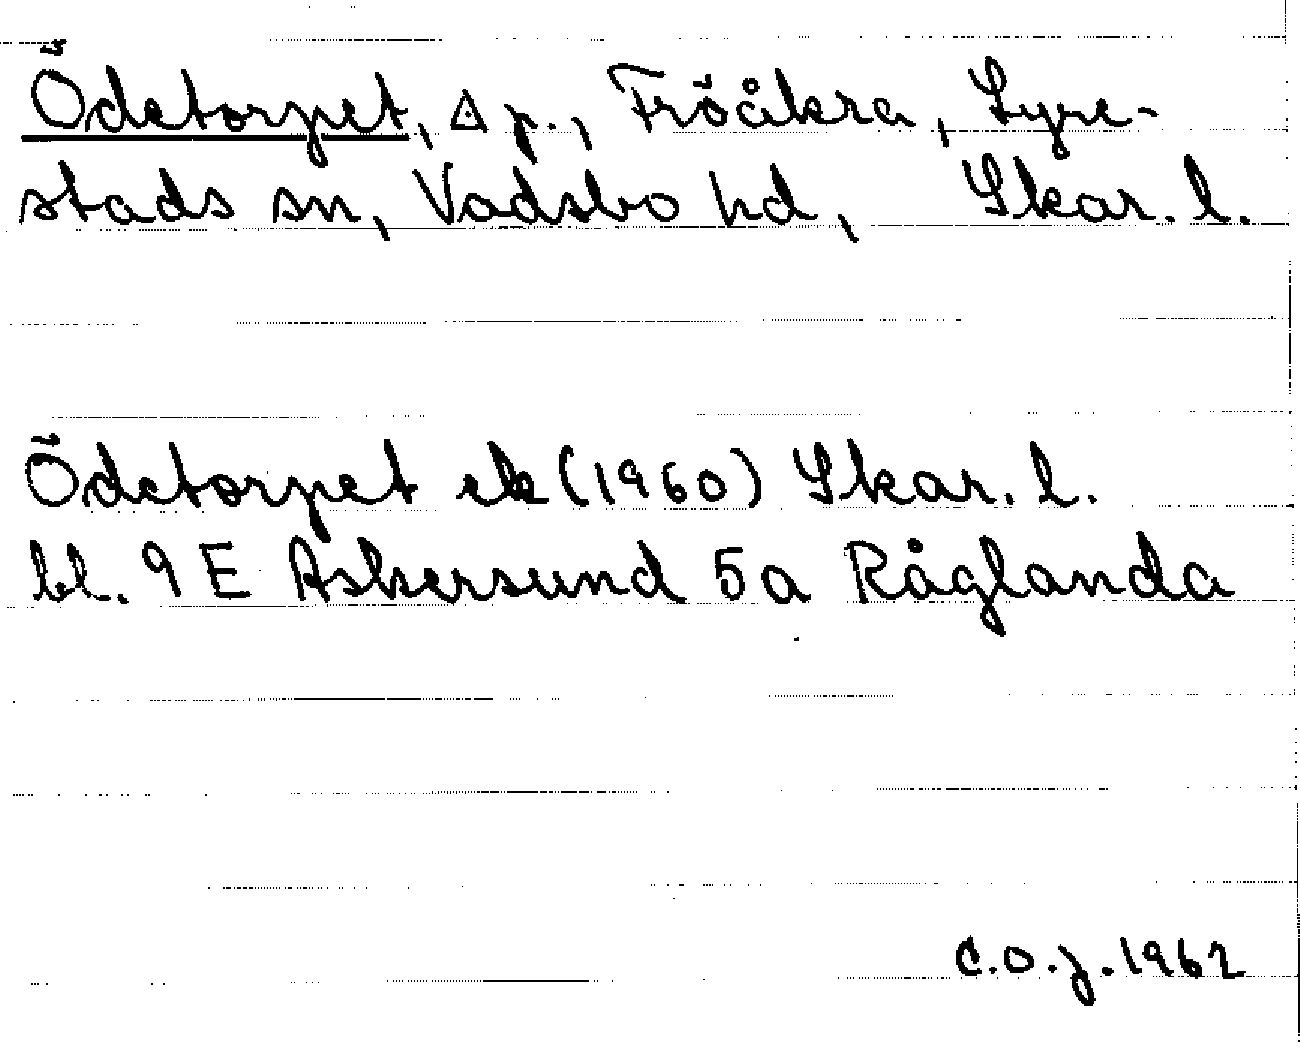 Ödetorpet, △ p., Fröåkra, Lyre-
stads sn, Vadsbo hd, Skar. l.
Ödetorpet ek (1960) Skar. l.
bl. 9 E Askersund 5a Råglanda
C.O.J. 1962